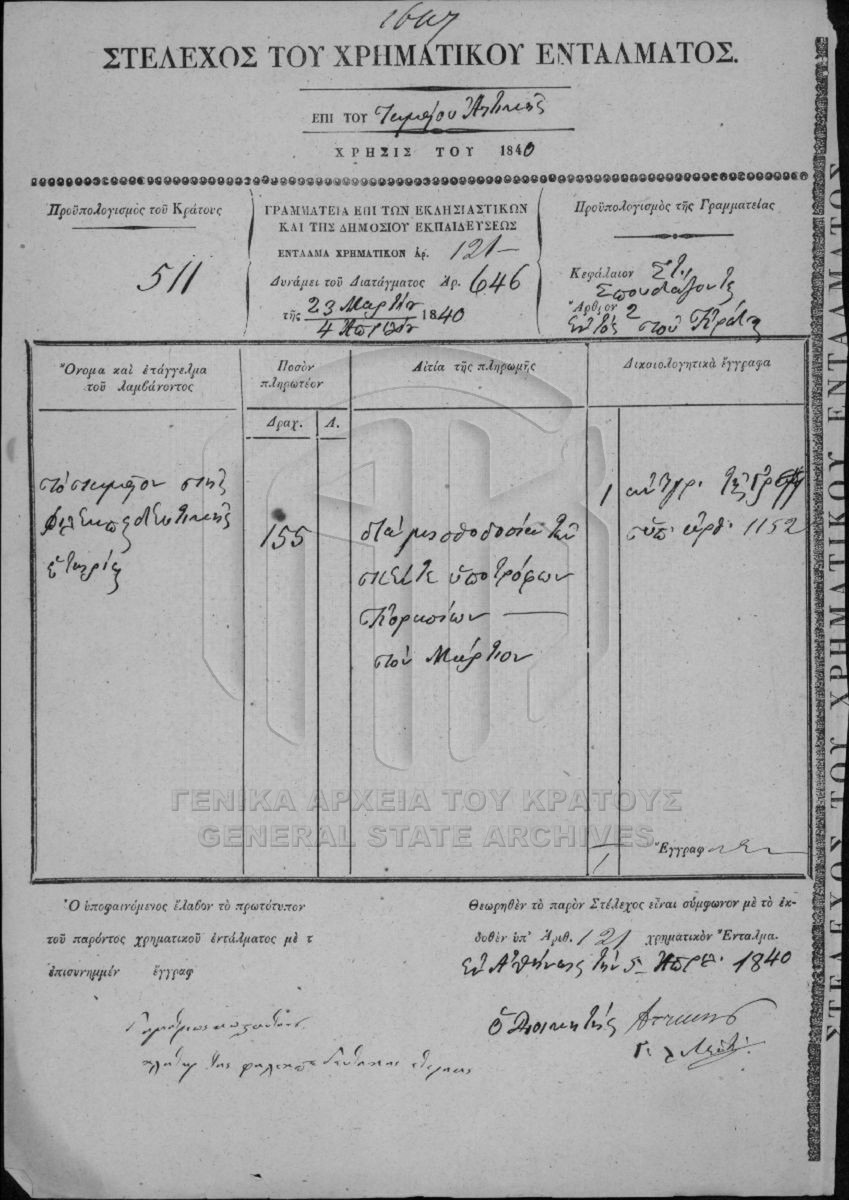 ΣΤΕΛΕΧΟΣ ΤΟΥ ΧΡΗΜΑΤΙΚΟΥ ΕΝΤΑΛΜΑΤΟΣ.
ΕΠΙ ΤΟΥ Ταμείου Αττικῆς
ΧΡΗΣΙΣ ΤΟΥ 1840
Προϋπολογισμὸς τοῦ Κράτους
511
ΓΡΑΜΜΑΤΕΙΑ ΕΠΙ ΤΩΝ ΕΚΛΗΣΙΑΣΤΙΚΩΝ
ΚΑΙ ΤΗΣ ΔΗΜΟΣΙΟΥ ΕΚΠΑΙΔΕΥΣΕΩΣ
ΕΝΤΑΛΜΑ ΧΡΗΜΑΤΙΚΟΝ ἀρ. 121
Δυνάμει τοῦ Διατάγματος Ἀρ. 646
τῆς 23 Μαρτίου 1840
4 Ἀπριλίου
Προϋπολογισμὸς τῆς Γραμματείας
Κεφάλαιον ΣΤ.
Σπουδάζοντες
Ἄρθρον 2
Ἐντὸς τοῦ Κράτους
Ὄνομα καὶ ἐπάγγελμα
τοῦ λαμβάνοντος
Ποσὸν
πληρωτέον
Δραχ. Λ.
Αἰτία τῆς πληρωμῆς
Δικαιολογητικὰ ἔγγραφα
τὸ ταμεῖον τῆς
Φιλεκπαιδευτικῆς
ἑταιρίας
155
διὰ μισθοδοσίαν τῶν
πέντε ὑποτρόφων
Κορασίων
τὸν Μάρτιον
1 ἀντίγρ.
ὑπ' ἀρθ. 1152
1 Ἔγγραφ
ΓΕΝΙΚΑ ΑΡΧΕΙΑ ΤΟΥ ΚΡΑΤΟΥΣ
GENERAL STATE ARCHIVES
Ὁ ὑποφαινόμενος ἔλαβον τὸ πρωτότυπον
τοῦ παρόντος χρηματικοῦ ἐντάλματος μὲ τ
ἐπισυνημμέν ἔγγραφ
Θεωρηθὲν τὸ παρὸν Στέλεχος εἶναι σύμφωνον μὲ τὸ ἐκ-
δοθὲν ὑπ' Ἀριθ. 121 χρηματικὸν Ἔνταλμα.
Ἐν Ἀθήναις τὴν 5 Ἀπριλ. 1840
ὁ Διοικητὴς Ἀττικῆς
τῆς φιλεκπαιδευτικῆς ἑταιρίας
ΣΤΕΛΕΧΟΣ ΤΟΥ ΧΡΗΜΑΤΙΚΟΥ ΕΝΤΑΛΜΑΤΟΣ